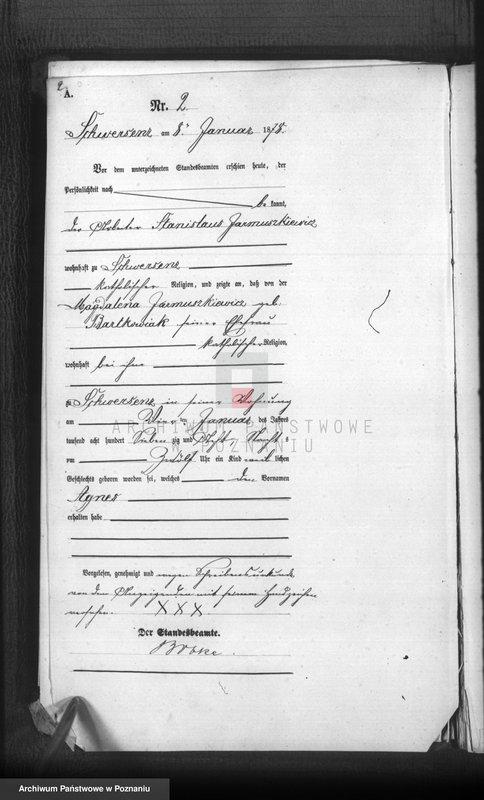 2
A.
Nr. 2
Schwersenz am 8ten Januar 1878.
Vor dem unterzeichneten Standesbeamten erschien heute, der
Persönlichkeit nach
be kannt,
der Arbeiter Stanislaus Jarmuszkiewicz
wohnhaft zu Schwersenz
katholischer Religion, und zeigte an, daß von der
Magdalena Jarmuszkiewicz geb.
Bartkowiak seiner Ehefrau
katholischer Religion,
wohnhaft bei ihm
zu Schwersenz in seiner Wohnung
am Januar des Jahres
tausend acht hundert Sieben zig und Acht, Nachts
um Zwölf Uhr ein Kind weib lichen
Geschlechts geboren worden sei, welches den Vornamen
Agnes
erhalten habe
ARCHIWUM PAŃSTWOWE
W POZNANIU
Vorgelesen, genehmigt und wegen Schreibensunkunde
von dem Anzeigenden mit seinem Handzeichen
versehen. XXX
Der Standesbeamte.
Archiwum Państwowe w Poznaniu